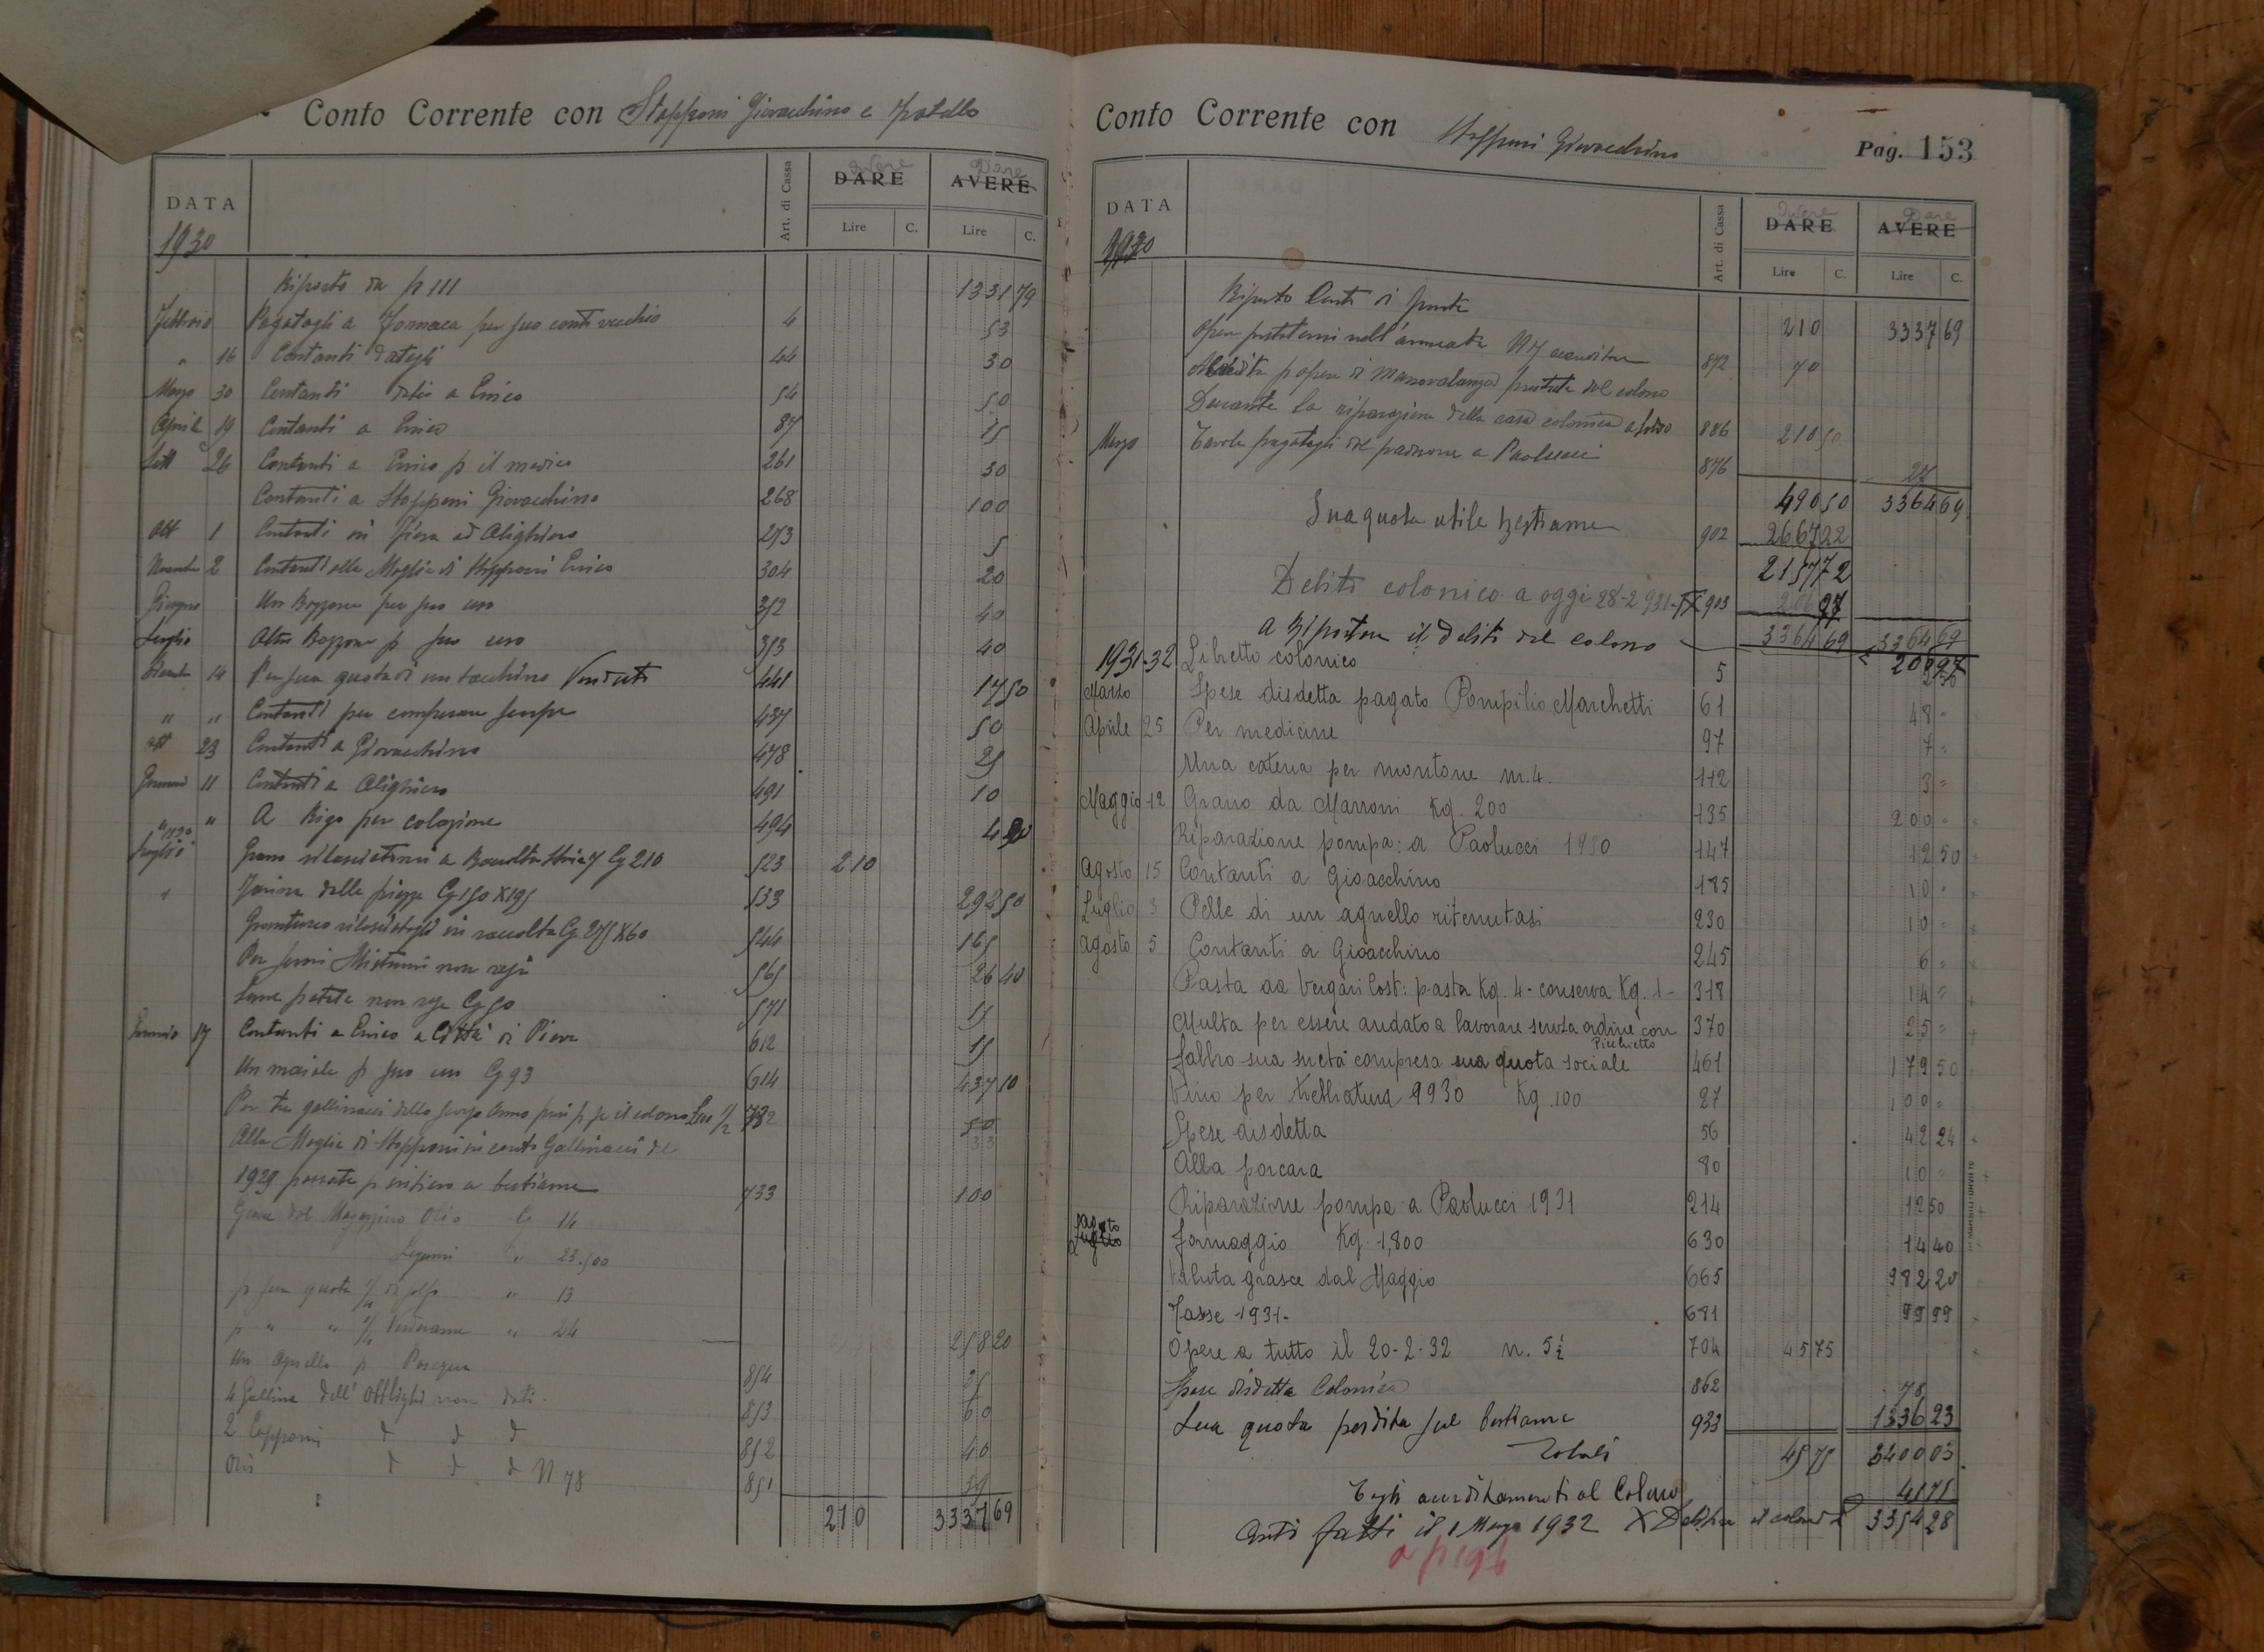 Conto Corrente con Stopponi Giovacchino e fratello
DATA Art. di Cassa DARE Avere AVERE Dare
1930 Lire C. Lire C.
Riporto da p 111 1331 79
Febbraio Pagatogli a Fornaca per suo conto vecchio 4 53
" 16 Contanti datogli 44 30
Marzo 30 Contanti dati a Enrico 54 50
Aprile 19 Contanti a Enrico 87 15
Sett 26 Contanti a Enrico p il medico 261 30
Contanti a Stopponi Giovacchino 268 100
Ott 1 Contanti in Fiera ad Alighiero 273 5
Novembre 2 Contanti alla Moglie di Stopponi Enrico 304 20
Giugno Un Bozzone per suo uso 352 40
Luglio Altro Bozzone p suo uso 353 40
14 Per sua quota di un tacchino Venduti 441 17 50
" " Contanti per comperare scarpe 437 50
ott 23 Contanti a Giovacchino 478 25
Gennaio 11 Contanti a Alighiero 491 10
" " A Rigo per colazione 494 4 90
1930
Luglio Grano rilasciatomi a Raccolta Kg 210 523 210
" Farina delle piogge Cg 150 X 195 533 292 50
Granturco rilasciatogli in raccolta Cg 275 X 60 544 165
Per semi Misturini non resi 565 26 40
Seme patate non rese Cg 50 571 15
Gennaio 17 Contanti a Enrico a Città di Pieve 612 15
Un maiale p suo uso Cg 93 614 437 10
Per tre gallinacci dello scorso Anno presi p se il colono Sua 1/2 732 50
33
Alla Moglie di Stopponi in conto Gallinacci del
1929 passate p intiero a bestiame 733 100
Grasce dal Magazzino Olio Cg 14
Legumi " 23.500
p sua quota di solfo " 13
p " " Verderame " 24 258 20
Un Agnello p Pasqua 854 35
4 Galline dell' Obblighi non dati. 853 60
2 Capponi d d d 852 40
Ova d d d N 78 851 39
210 3337 69
Conto Corrente con Stopponi Giovacchino Pag. 153
DATA Art. di Cassa DARE Avere AVERE Dare
1930 Lire C. Lire C.
Riporto Conti di fronte 210 3337 69
Opere prestatemi nell'annata N 7 accredito 872 70
Accredita p opere di Manovalanza prestate dal colono
Durante la riparazione della casa colonica a saldo 886 210 50
Marzo Tavole pagatogli dal padrone a Paolucci 876 27
490 50 3364 69
Sua quota utile bestiame 902 2667 22
2157 72
Debito colonico a oggi 28-2 931-IX 903 206 97
A Riportare il debito del colono 3364 69 3364 69
206 97
1931-32 Libretto colonico 5 2 50
Marzo Spese disdetta pagato Pompilio Marchetti 61 48 "
Aprile 25 Per medicine 97 7 "
Una catena per montone m. 4. 112 3 "
Maggio 12 Grano da Marroni Kg. 200 135 200 "
Riparazione pompa: a Paolucci 1930 147 12 50
Agosto 15 Contanti a Gioacchino 185 10 "
Luglio 3 Pelle di un agnello ritenutasi 230 10 "
Agosto 5 Contanti a Gioacchino 245 6 "
Pasta da Vergari Cost: pasta Kg. 4 - conserva Kg. 1 - 318 14 "
Multa per essere andato a lavorare senza ordine con 370 25 "
Picchietto
Fabbro sua metà compresa sua quota sociale 461 179 50
Vino per trebbiatura 9930 Kg. 100 27 100 "
Spese disdetta 56 42 24
Alla porcara 80 10 "
Riparazione pompa a Paolucci 1931 214 12 50
Agosto Formaggio Kg. 1,800 630 14 40
Valuta grasce dal Maggio 665 982 20
Tasse 1931- 681 99 99
Opere a tutto il 20-2-32 n. 5 ½ 704 45 75
Spese disdetta Colonica 862 78
Sua quota perdita sul bestiame 933 1336 23
Totali 45 75 3400 03
Togli accreditamenti al Colono 45 75
Conti fatti il 1 Marzo 1932 X Debito al colono 3354 28
a p 196